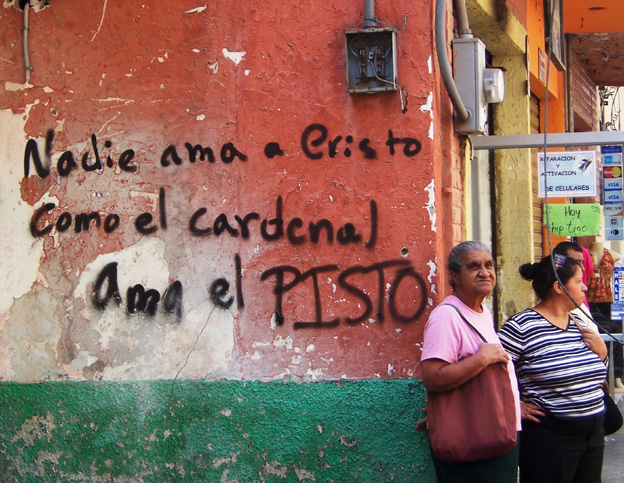 Nadie ama a Cristo
Como el cardenal
Ama el PISTO
REPARACION Y
ACTIVACION
DE CELULARES
Hoy
VISA
VISA